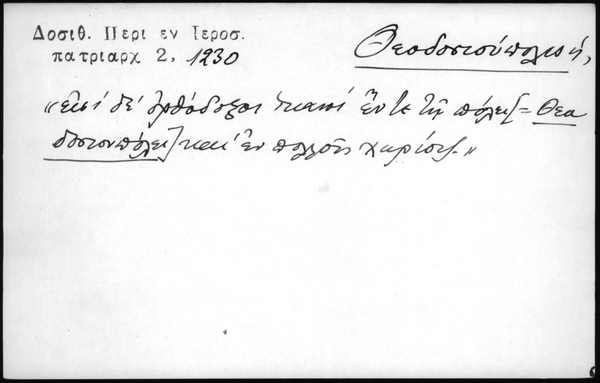 Δοσιθ. Περι εν Ιεροσ.
πατριαρχ 2, 1230
Θεοδοσιούπολις ἡ,
«εἰσὶ δὲ ὀρθόδοξοι ἱκανοὶ ἔν τε τῇ πόλει [= Θεο
δοσιουπόλει] καὶ ἐν πολλοῖς χωρίοις.»